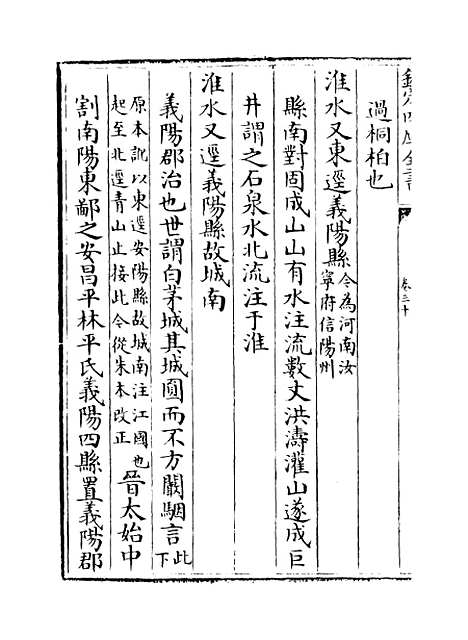 欽定四庫全書
卷三十
過桐柏也
淮水又東逕義陽縣今為河南汝寧府信陽州
縣南對固成山山有水注流數丈洪濤灌山遂成巨
井謂之石泉水北流注于淮
淮水又逕義陽縣故城南
義陽郡治也世謂白茅城其城圓而不方闞駰言此下
原本訛以東逕安陽縣故城南注江國也起至北逕青山止接此今從朱本改正晉太始中
割南陽東鄙之安昌平林平氏義陽四縣置義陽郡